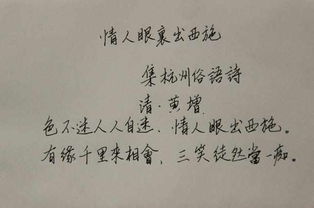 情人眼裏出西施
集杭州俗語詩
清·黄增
色不迷人人自迷，情人眼出西施。
有缘千里来相會，三笑徒然當一痴。